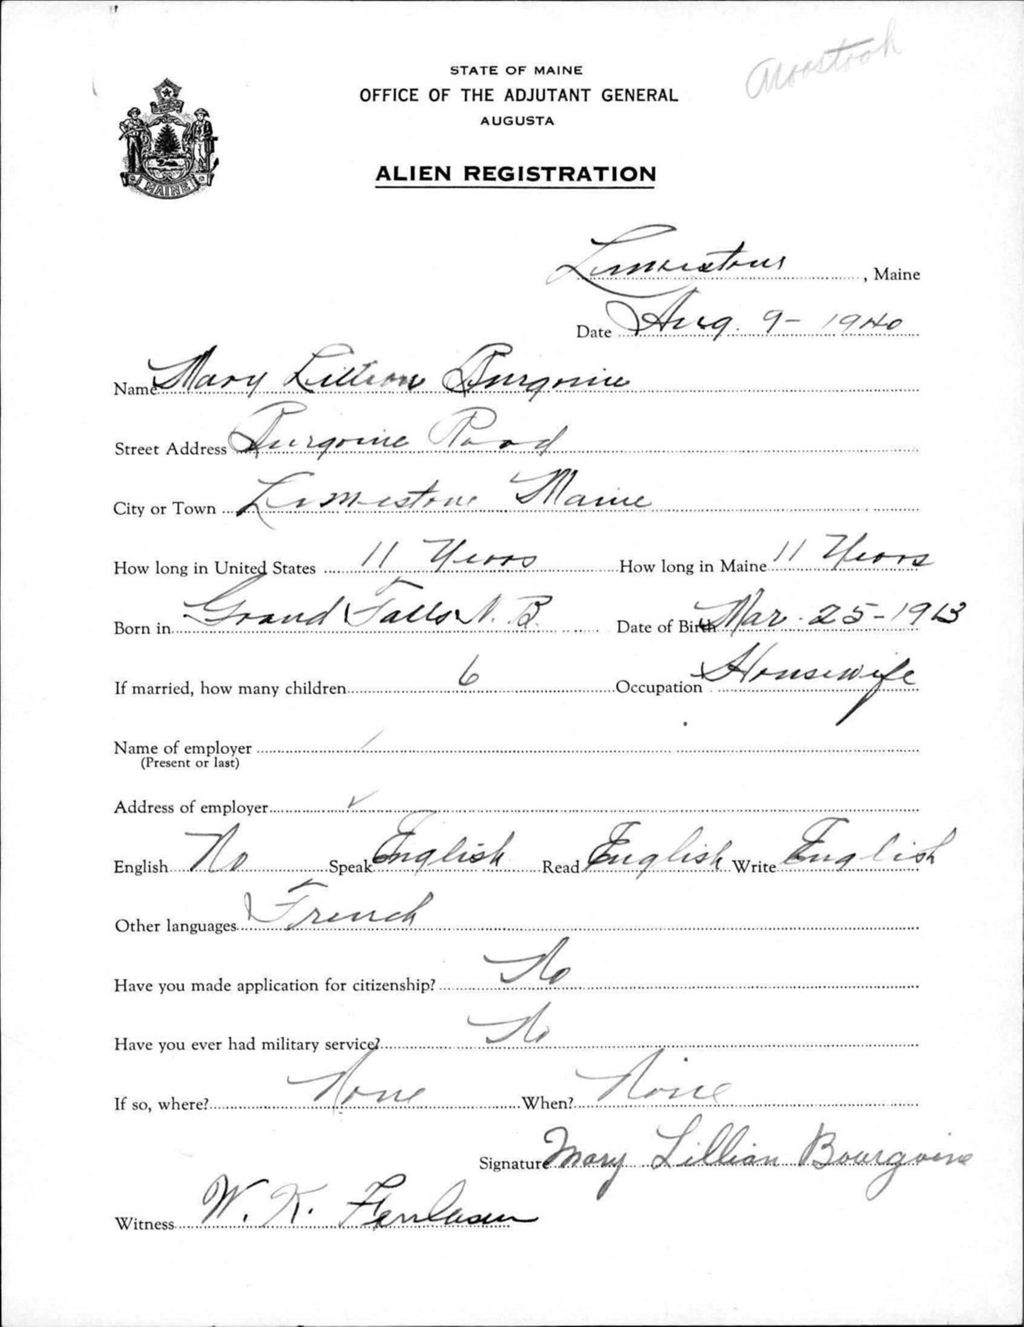 Aroostook
STATE OF MAINE
OFFICE OF THE ADJUTANT GENERAL
AUGUSTA
ALIEN REGISTRATION
MAINE
Limestone, Maine
Date Aug. 9 - 1940
Name Mary Lillian Burgoine
Street Address Burgoine Road
City or Town Limestone Maine
How long in United States 11 Years How long in Maine 11 Years
Born in Grand Falls N. B. Date of Birth Mar. 25 - 1913
If married, how many children 6 Occupation Housewife
Name of employer
(Present or last)
Address of employer
English No Speak English Read English Write English
Other languages French
Have you made application for citizenship? No
Have you ever had military service? No
If so, where? None When? None
Signature Mary Lillian Bourgoine
Witness W. K.